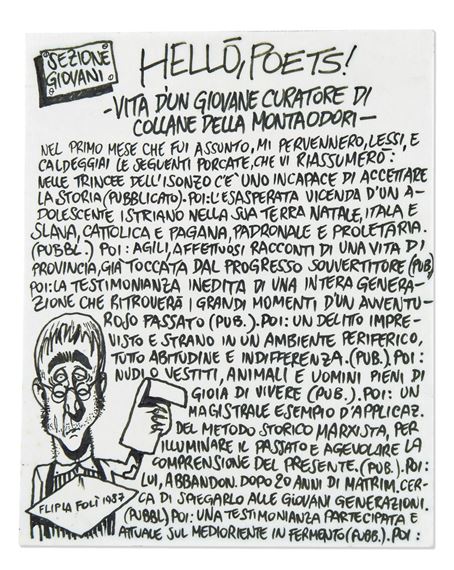 SEZIONE
GIOVANI
HELLŌ, POETS!
-VITA D'UN GIOVANE CURATORE DI
COLLANE DELLA MONTAODORI-
NEL PRIMO MESE CHE FUI ASSUNTO, MI PERVENNERO, LESSI, E
CALDEGGIAI LE SEGUENTI PORCATE, CHE VI RIASSUMERÒ:
NELLE TRINCEE DELL'ISONZO C'È UNO INCAPACE DI ACCETTARE
LA STORIA (PUBBLICATO). POI: L'ESASPERATA VICENDA D'UN A-
DOLESCENTE ISTRIANO NELLA SUA TERRA NATALE, ITALA E
SLAVA, CATTOLICA E PAGANA, PADRONALE E PROLETARIA.
(PUBBL.) POI: AGILI, AFFETTUOSI RACCONTI DI UNA VITA DI
PROVINCIA, GIÀ TOCCATA DAL PROGRESSO SOVVERTITORE (PUB)
POI: LA TESTIMONIANZA INEDITA DI UNA INTERA GENERA-
ZIONE CHE RITROVERÀ I GRANDI MOMENTI D'UN AVVENTU-
ROSO PASSATO (PUB.). POI: UN DELITTO IMPRE-
VISTO E STRANO IN UN AMBIENTE PERIFERICO,
TUTTO ABITUDINE E INDIFFERENZA. (PUB.). POI:
NUDI O VESTITI, ANIMALI E UOMINI PIENI DI
GIOIA DI VIVERE (PUB.). POI: UN
MAGISTRALE ESEMPIO D'APPLICAZ.
DEL METODO STORICO MARXISTA, PER
ILLUMINARE IL PASSATO E AGEVOLARE LA
COMPRENSIONE DEL PRESENTE. (PUB.). POI:
LUI, ABBANDON. DOPO 20 ANNI DI MATRIM. CER-
CA DI SPIEGARLO ALLE GIOVANI GENERAZIONI.
(PUBBL) POI: UNA TESTIMONIANZA PARTECIPATA E
ATTUALE SUL MEDIORIENTE IN FERMENTO (PUBB.). POI:
FLIPLA FOLÌ 1987